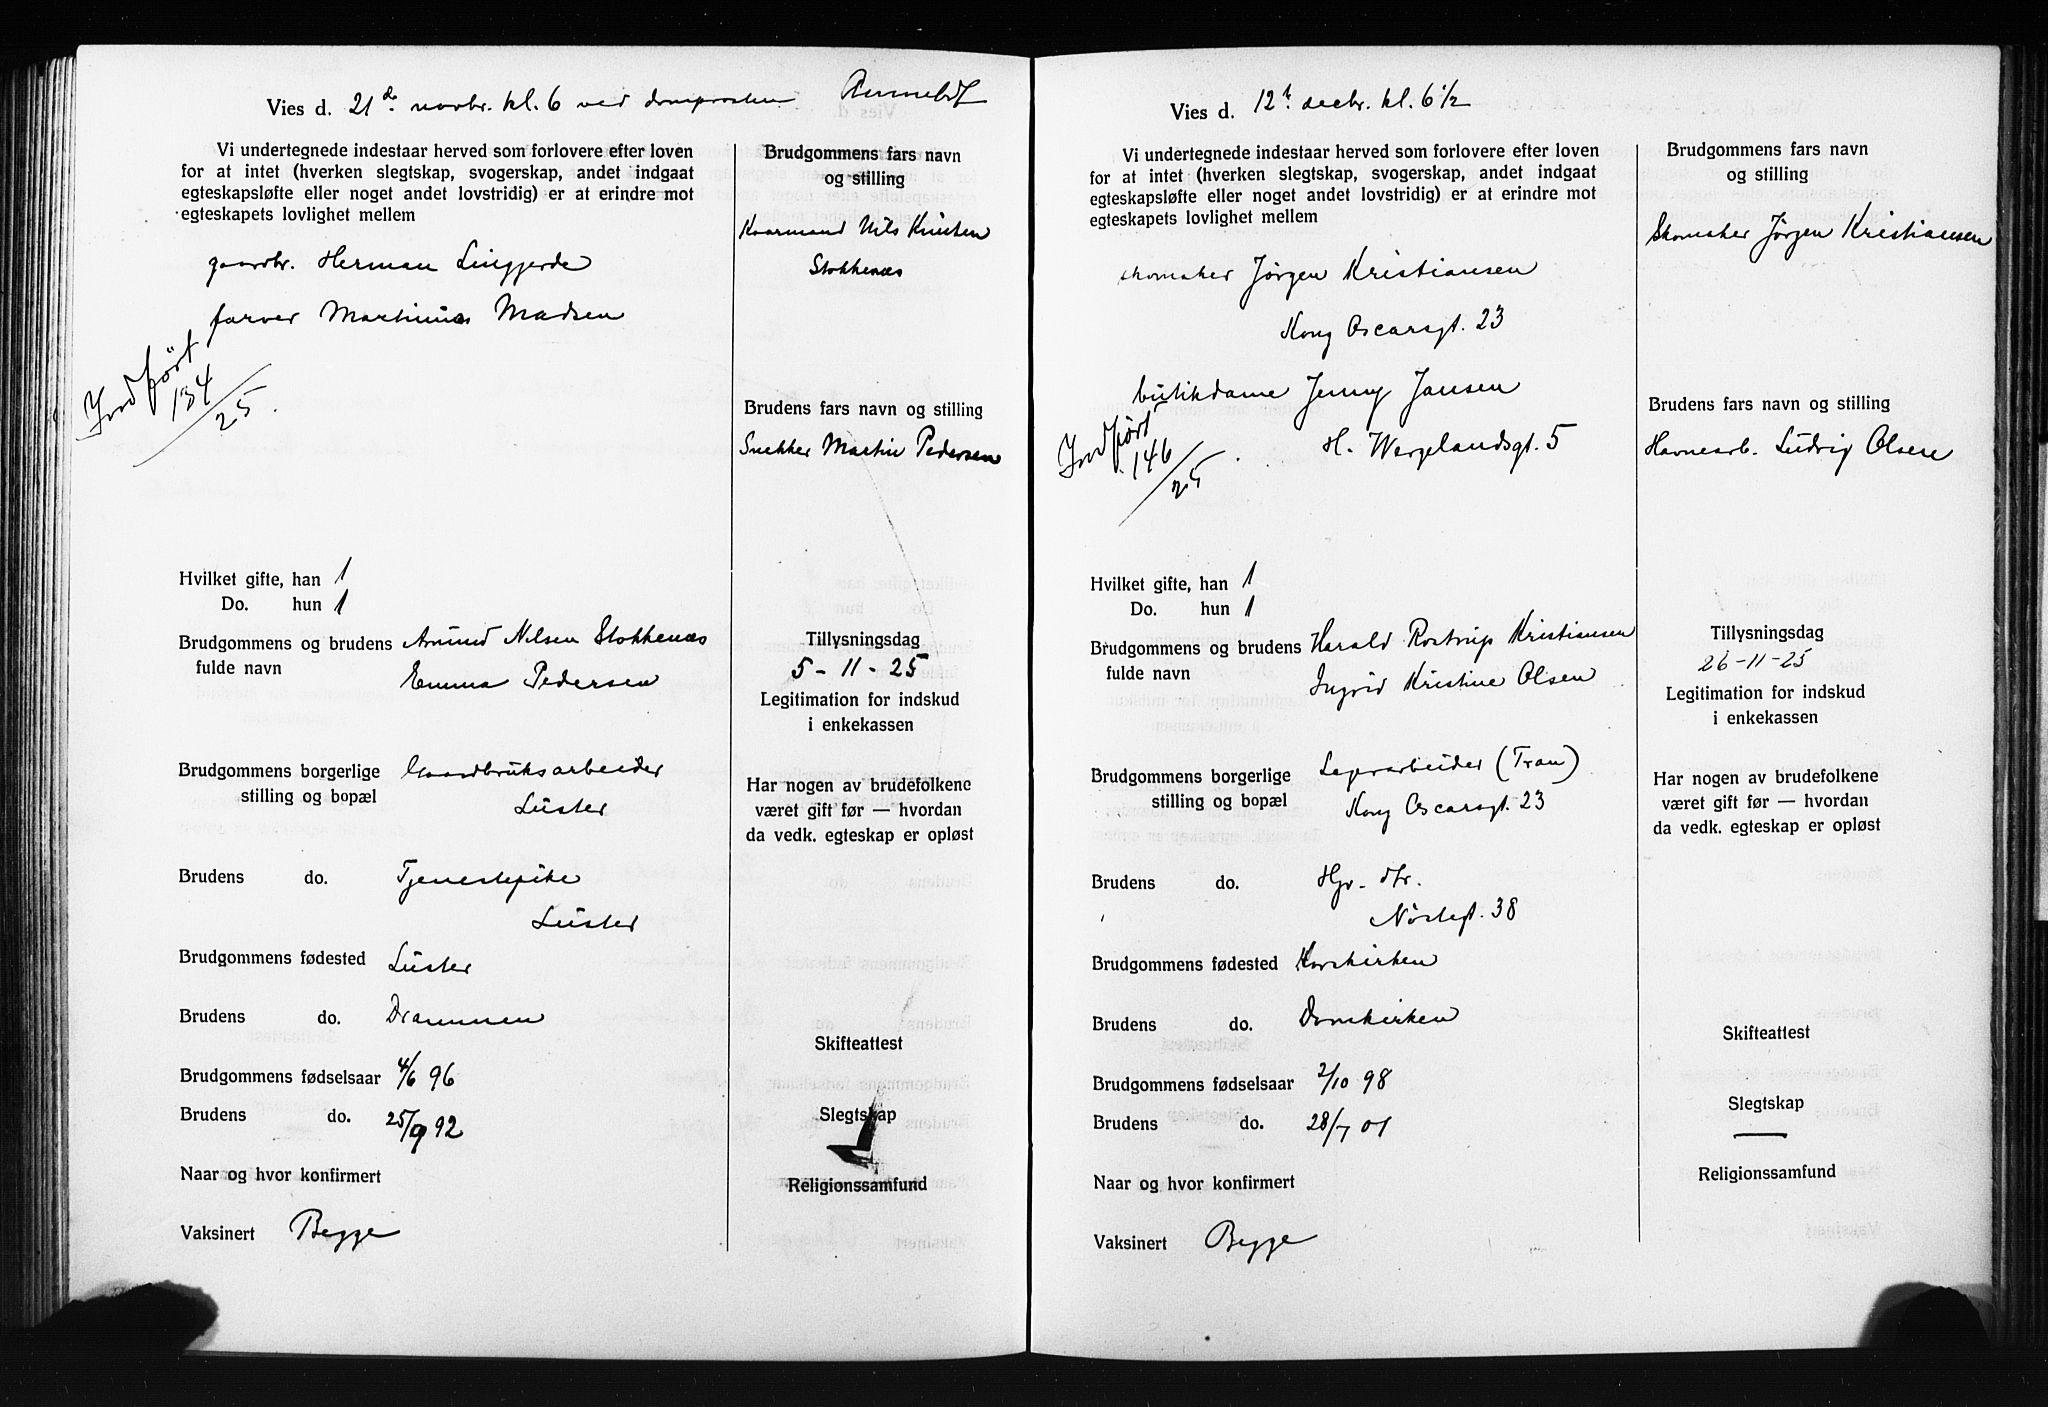 Vies d. 21de novbr. kl. 6 ved domprosten
Vi undertegnede indestaar herved som forlovere efter loven
for at intet (hverken slegtskap, svogerskap, andet indgaat
egteskapsløfte eller noget andet lovstridig) er at erindre mot
egteskapets lovlighet mellem
gaardbr. Herman Lingjerde
farver Martinus Madsen
Indført
134
25.
Hvilket gifte, han 1
Do. hun 1
Brudgommens og brudens Amund Nilsen Stokkenæs
fulde navn Emma Pedersen
Brudgommens borgerlige Gaardbruksarbeider
stilling og bopæl Luster
Brudens do. Tjenestepike
Luster
Brudgommens fødested Luster
Brudens do. Drammen
Brudgommens fødselsaar 4/6 96
Brudens do. 25/9 92
Naar og hvor konfirmert
Vaksinert Begge
Brudgommens fars navn
og stilling
Kaarmand Nils Knutsen
Stokkenæs
Brudens fars navn og stilling
Snekker Martin Pedersen
Tillysningsdag
5-11-25
Legitimation for indskud
i enkekassen
Har nogen av brudefolkene
været gift før — hvordan
da vedk. egteskap er opløst
Skifteattest
Slegtskap
Religionssamfund
Vies d. 12te decbr. kl. 6 1/2
Vi undertegnede indestaar herved som forlovere efter loven
for at intet (hverken slegtskap, svogerskap, andet indgaat
egteskapsløfte eller noget andet lovstridig) er at erindre mot
egteskapets lovlighet mellem
skomaker Jørgen Kristiansen
Kong Oscarsgt. 23
butikdame Jenny Jansen
H. Wergelandsgt. 5
Indført
146
25.
Hvilket gifte, han 1
Do. hun 1
Brudgommens og brudens Harald Rostrup Kristiansen
fulde navn Ingrid Kristine Olsen
Brudgommens borgerlige Lagerarbeider (Tran)
stilling og bopæl Kong Oscarsgt. 23
Brudens do. Hjv. dtr.
Nöstegt. 38
Brudgommens fødested Korskirken
Brudens do. Domkirken
Brudgommens fødselsaar 2/10 98
Brudens do. 28/7 01
Naar og hvor konfirmert
Vaksinert Begge
Brudgommens fars navn
og stilling
Skomaker Jørgen Kristiansen
Brudens fars navn og stilling
Havnearb. Ludvig Olsen
Tillysningsdag
26-11-25
Legitimation for indskud
i enkekassen
Har nogen av brudefolkene
været gift før — hvordan
da vedk. egteskap er opløst
Skifteattest
Slegtskap
—
Religionssamfund